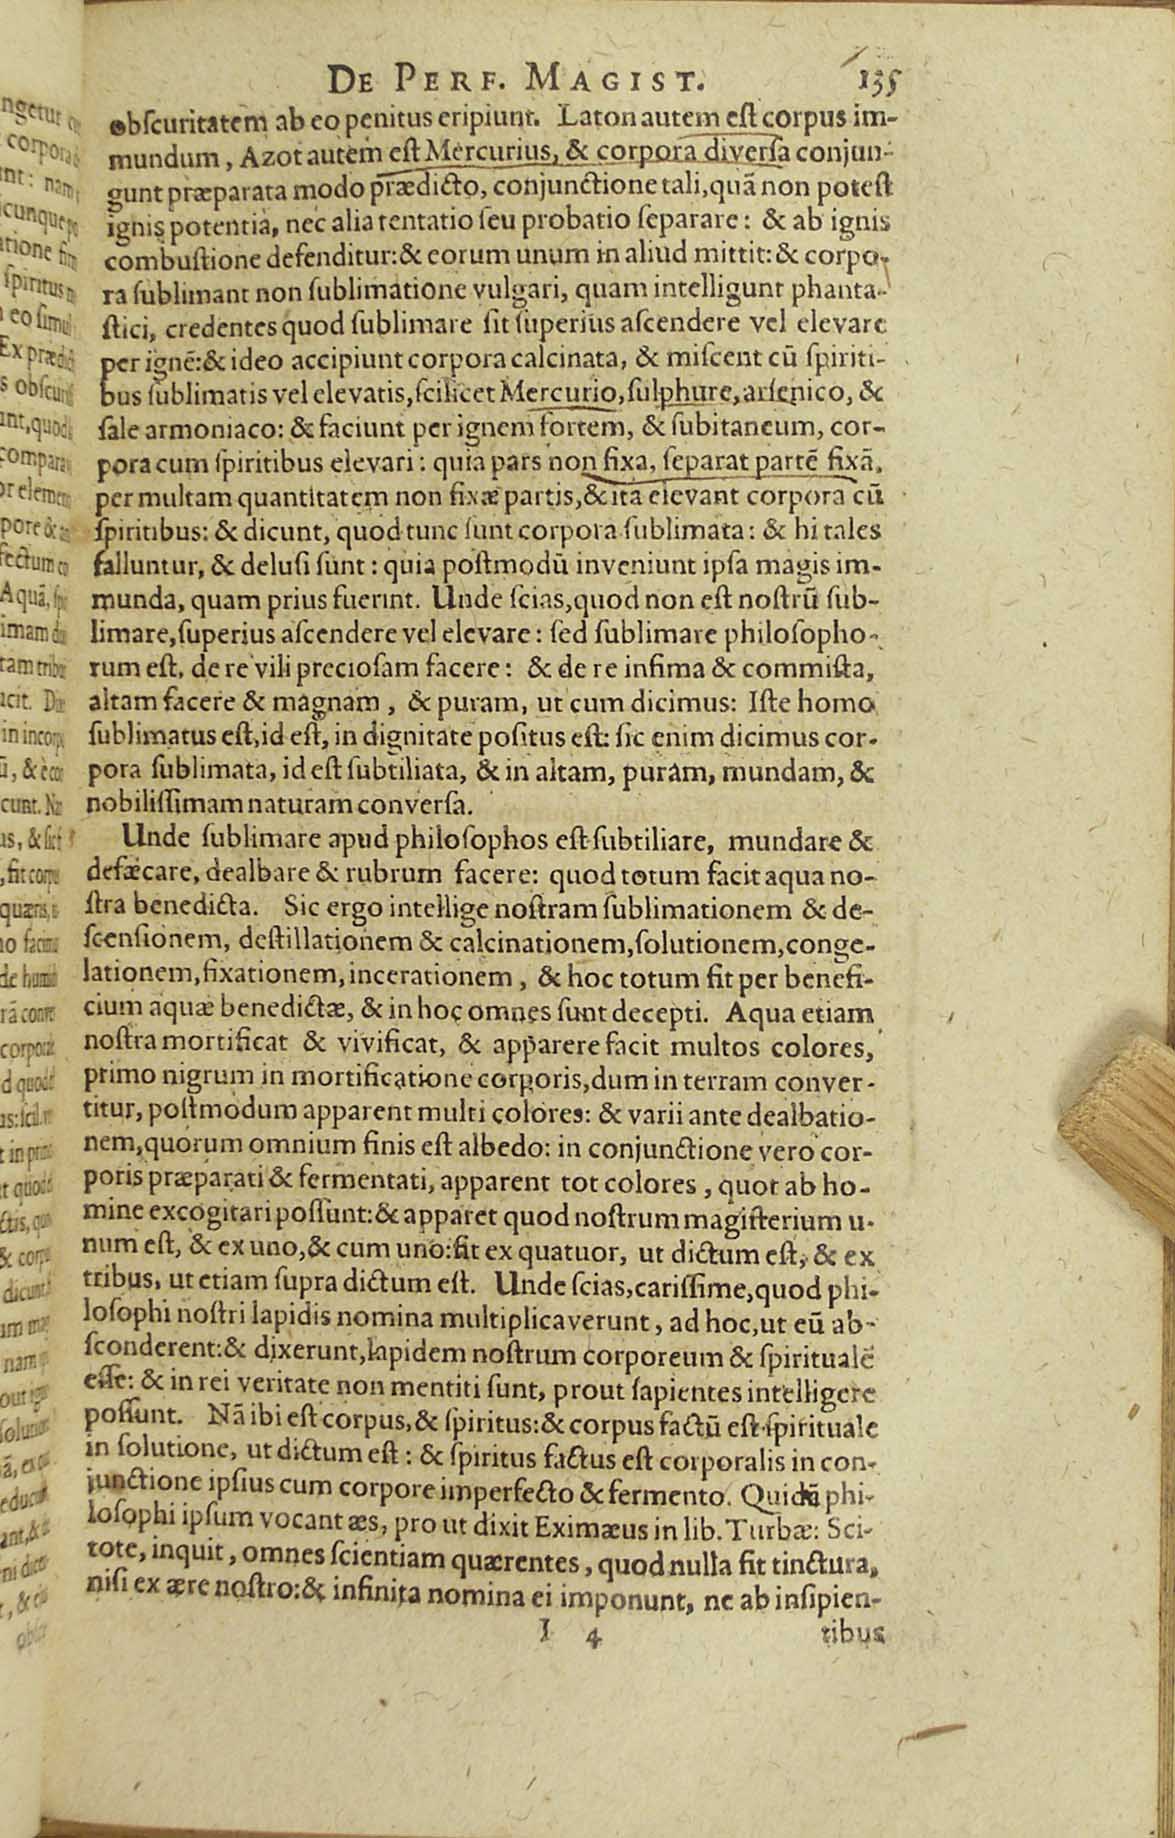 DE PERF. MAGIST. 135
obscuritatem ab eo penitus eripiunt. Laton autem est corpus im-
mundum, Azot autem est Mercurius, & corpora diversa conjun-
gunt præparata modo prædicto, conjunctione tali, quā non potest
ignis potentia, nec alia tentatio seu probatio separare: & ab ignis
combustione defenditur: & eorum unum in aliud mittit: & corpo-
ra sublimant non sublimatione vulgari, quam intelligunt phanta-
stici, credentes quod sublimare sit superius ascendere vel elevare
per ignē: & ideo accipiunt corpora calcinata, & miscent cū spiriti-
bus sublimatis vel elevatis, scilicet Mercurio, sulphure, arsenico, &
sale armoniaco: & faciunt per ignem fortem, & subitaneum, cor-
pora cum spiritibus elevari: quia pars non fixa, separat partē fixā,
per multam quantitatem non fixæ partis, & ita elevant corpora cū
spiritibus: & dicunt, quod tunc sunt corpora sublimata: & hi tales
falluntur, & delusi sunt: quia postmodū inveniunt ipsa magis im-
munda, quam prius fuerint. Unde scias, quod non est nostrū sub-
limare, superius ascendere vel elevare: sed sublimare philosopho-
rum est, de re vili preciosam facere: & de re infima & commista,
altam facere & magnam, & puram, ut cum dicimus: Iste homo
sublimatus est, id est, in dignitate positus est: sic enim dicimus cor-
pora sublimata, id est subtiliata, & in altam, puram, mundam, &
nobilissimam naturam conversa.
Unde sublimare apud philosophos est subtiliare, mundare &
defæcare, dealbare & rubrum facere: quod totum facit aqua no-
stra benedicta. Sic ergo intellige nostram sublimationem & de-
scensionem, destillationem & calcinationem, solutionem, conge-
lationem, fixationem, incerationem, & hoc totum fit per benefi-
cium aquæ benedictæ, & in hoc omnes sunt decepti. Aqua etiam
nostra mortificat & vivificat, & apparere facit multos colores,
primo nigrum in mortificatione corporis, dum in terram conver-
titur, postmodum apparent multi colores: & varii ante dealbatio-
nem, quorum omnium finis est albedo: in conjunctione vero cor-
poris præparati & fermentati, apparent tot colores, quot ab ho-
mine excogitari possunt: & apparet quod nostrum magisterium u-
num est, & ex uno, & cum uno: fit ex quatuor, ut dictum est, & ex
tribus, ut etiam supra dictum est. Unde scias, carissime, quod phi-
losophi nostri lapidis nomina multiplicaverunt, ad hoc, ut eū ab-
sconderent: & dixerunt, lapidem nostrum corporeum & spiritualē
esse: & in rei veritate non mentiti sunt, prout sapientes intelligere
possunt. Nā ibi est corpus, & spiritus: & corpus factū est spirituale
in solutione, ut dictum est: & spiritus factus est corporalis in con-
junctione ipsius cum corpore imperfecto & fermento. Quidā phi-
losophi ipsum vocant æs, pro ut dixit Eximæus in lib. Turbæ: Sci-
tote, inquit, omnes scientiam quærentes, quod nulla fit tinctura,
nisi ex ære nostro: & infinita nomina ei imponunt, ne ab insipien-
I 4 tibus